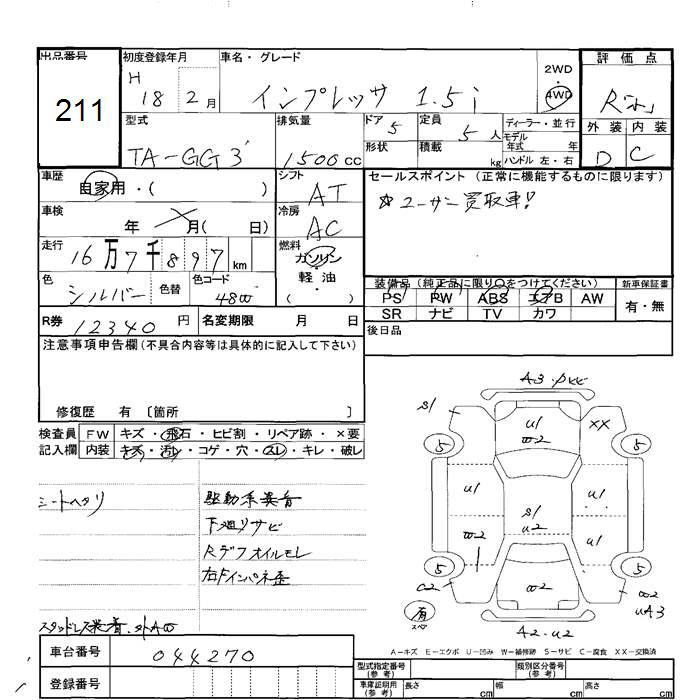 出品番号
211
初度登録年月
H 18 2月
車名・グレード
インプレッサ 1.5i
2WD
・
4WD
評価点
外装 内装
D C
型式
TA-GG3
排気量
1500cc
ドア 5
形状
定員 5人
積載 kg
ディーラー・並行
モデル
年式 年
ハンドル 左・右
車歴
自家用・( )
シフト
AT
セールスポイント (正常に機能するものに限ります)
☆ユーザー買取車!
車検
年 月( 日)
冷房
AC
走行
16万7千897km
燃料
ガソリン
・
軽油
( )
色
シルバー
色替
色コード
48W
装備品 (純正品に限り○をつけてください)
新車保証書
PS PW ABS エアB AW
有・無
SR ナビ TV カワ
R券 12340円
名変期限 月 日
後日品
注意事項申告欄(不具合内容等は具体的に記入して下さい)
修復歴 有〔箇所 〕
検査員
記入欄
FW キズ・飛石・ヒビ割・リペア跡・×要
内装 キズ・汚レ・コゲ・穴・スレ・キレ・破レ
シートヘタリ
駆動系異音
下廻リサビ
Rデフオイルモレ
右Fインパネ歪
スタッドレス装着.外AW
車台番号 044270
登録番号
A3・
S/
U1
W2
XX
5
5
U1
U1
S/
U2
W2
U1
5
5
C2
W2
W2
UA3
有
スペア
A2・U2
A-キズ E-エクボ U-凹み W-補修跡 S-サビ C-腐食 XX-交換済
型式指定番号
(参考)
類別区分番号
(参考)
車庫証明用
(参考)
長さ cm
幅 cm
高さ cm